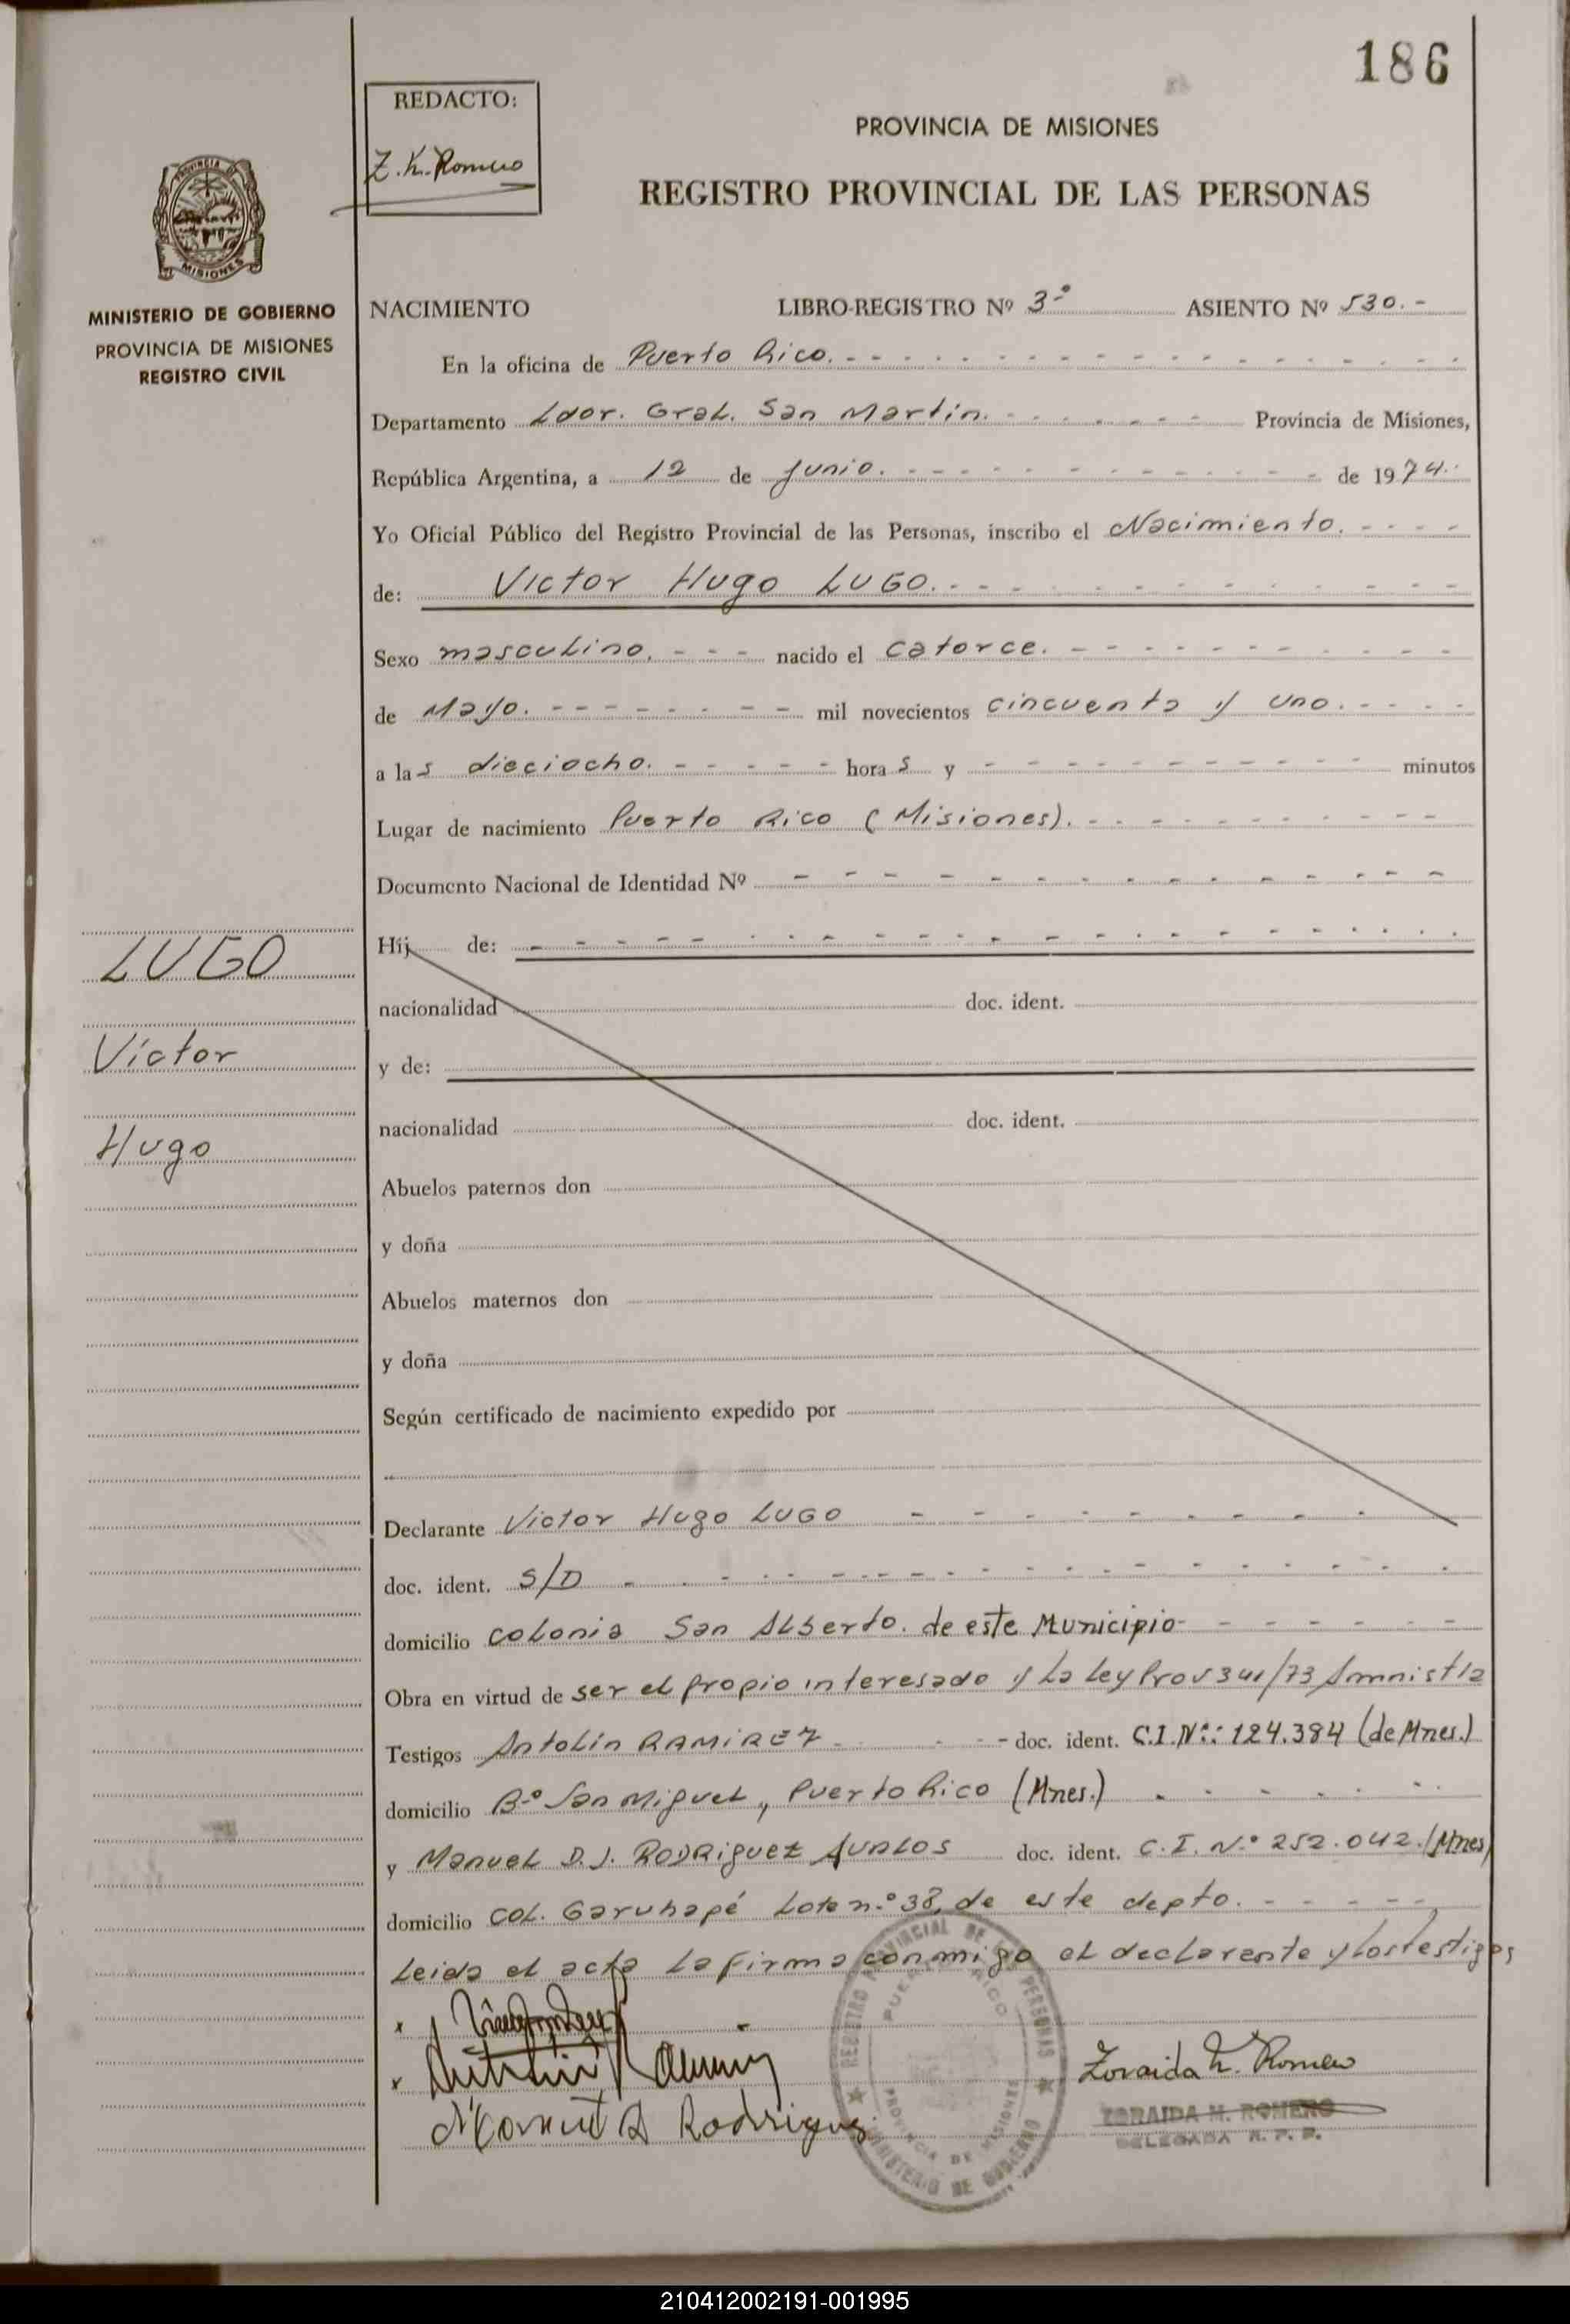 186
REDACTO:
Z. M. Romero
PROVINCIA DE MISIONES
REGISTRO PROVINCIAL DE LAS PERSONAS
PROVINCIA
MISIONES
MINISTERIO DE GOBIERNO
PROVINCIA DE MISIONES
REGISTRO CIVIL
NACIMIENTO LIBRO-REGISTRO Nº 3º ASIENTO Nº 530.-
En la oficina de Puerto Rico.
Departamento Ldor. Gral. San Martín. Provincia de Misiones,
República Argentina, a 12 de Junio. de 1974.
Yo Oficial Público del Registro Provincial de las Personas, inscribo el Nacimiento.
de: Victor Hugo LUGO.
Sexo masculino. nacido el catorce.
de Mayo. mil novecientos cincuenta y uno.
a las dieciocho. horas y minutos
Lugar de nacimiento Puerto Rico (Misiones).
Documento Nacional de Identidad Nº
Hij de:
LUGO
nacionalidad doc. ident.
Víctor
y de:
nacionalidad doc. ident.
Hugo
Abuelos paternos don
y doña
Abuelos maternos don
y doña
Según certificado de nacimiento expedido por
Declarante Victor Hugo LUGO
doc. ident. S/D
domicilio colonia San Alberto. de este Municipio
Obra en virtud de ser el propio interesado y la Ley Prov 341/73 Amnistia
Testigos Antolín RAMIREZ doc. ident. C.I.Nº: 124.384 (de Mnes.)
domicilio Bº San Miguel, Puerto Rico (Mnes.)
y Manuel D. J. RODRIGUEZ AVALOS doc. ident. C. I. N.º 252.042. (Mnes)
domicilio Col. Garuhapé Lote n.º 38, de este depto.
Leida el acta la firma conmigo el declarante y los testigos
REGISTRO PROVINCIAL DE LAS PERSONAS
PUERTO RICO
PROVINCIA DE MISIONES
MINISTERIO DE GOBIERNO
Antolin Ramirez
Zoraida M. Romero
Manuel Rodriguez
ZORAIDA M. ROMERO
DELEGADA R. P. P.
210412002191-001995